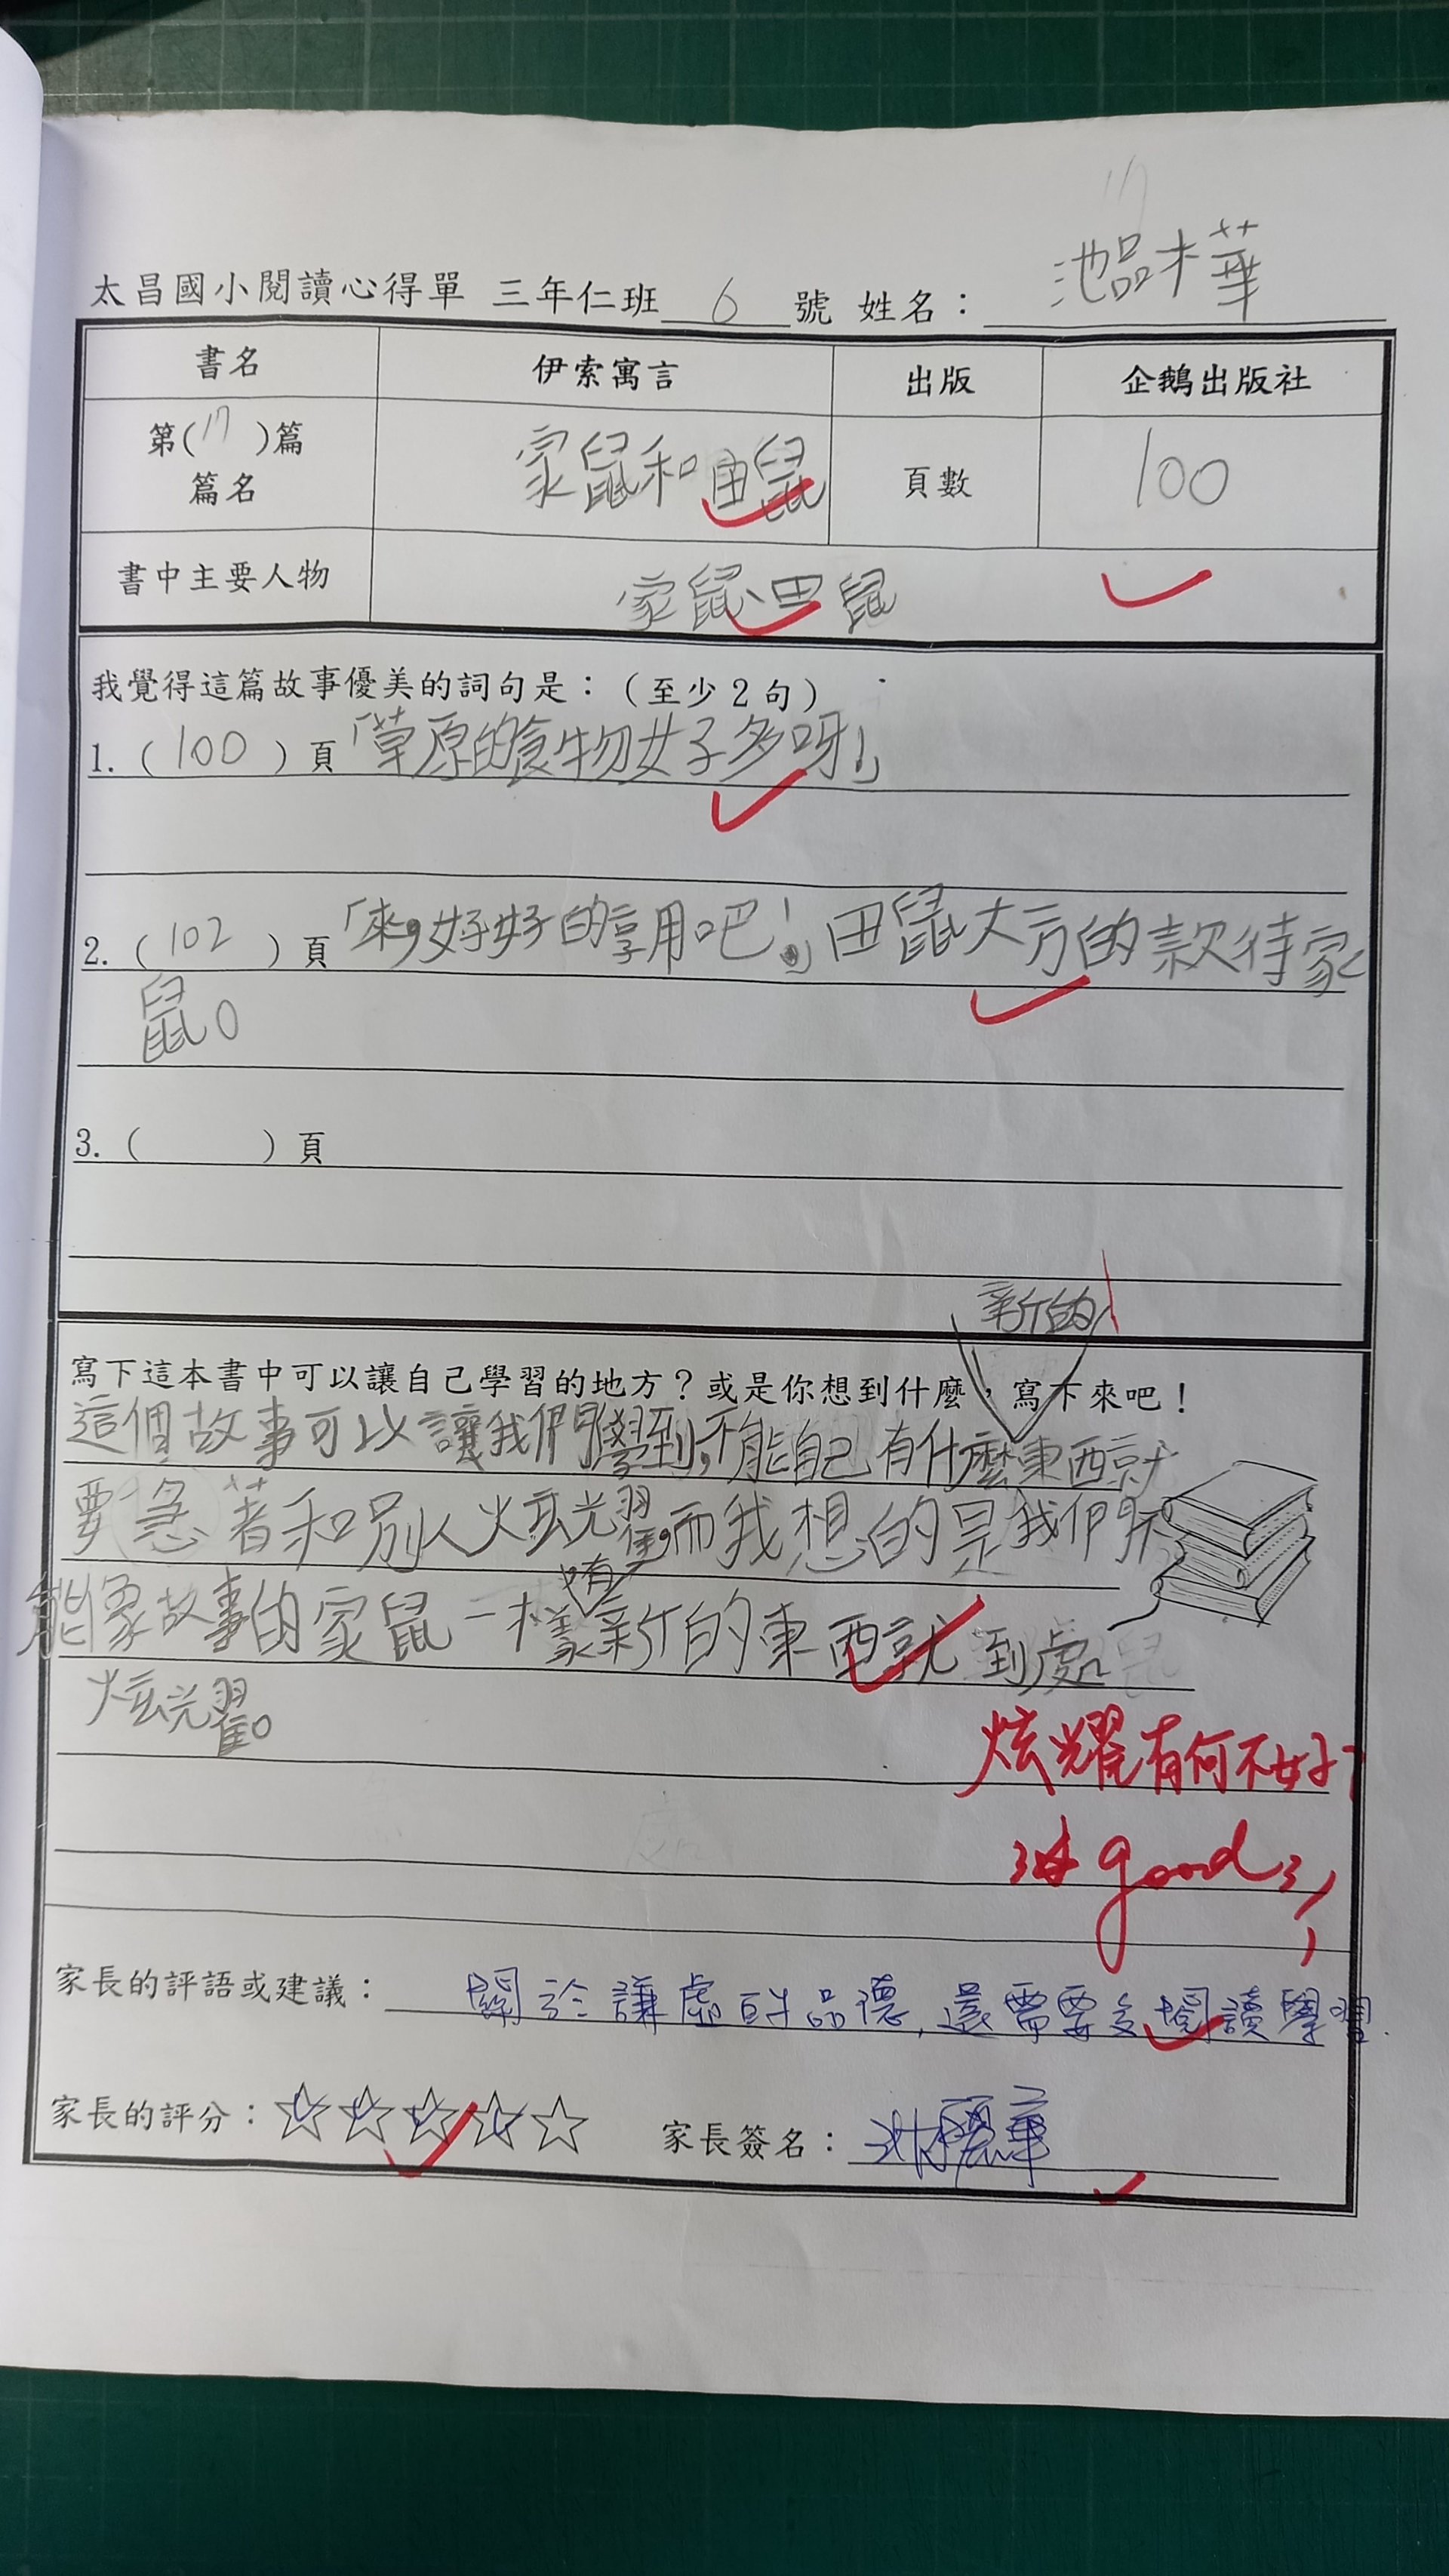 太昌國小閱讀心得單 三年仁班 6 號 姓名：池品樺
書名 伊索寓言 出版 企鵝出版社
第(17)篇
篇名 家鼠和田鼠 頁數 100
書中主要人物 家鼠、田鼠
我覺得這篇故事優美的詞句是：（至少2句）
1.（100）頁「草原的食物好多呀!」
2.（102）頁「來,好好的享用吧!」田鼠大方的款待家
鼠。
3.（ ）頁
新的
寫下這本書中可以讓自己學習的地方？或是你想到什麼，寫下來吧！
這個故事可以讓我們學到,不能自己有什麼東西就
要急著和別人炫耀,而我想的是我們不
有
能像故事的家鼠一樣新的東西就到處
炫耀。
炫耀有何不好?
good
家長的評語或建議：關於謙虛的品德,還需要多閱讀學習.
家長的評分：☆☆☆☆☆ 家長簽名：